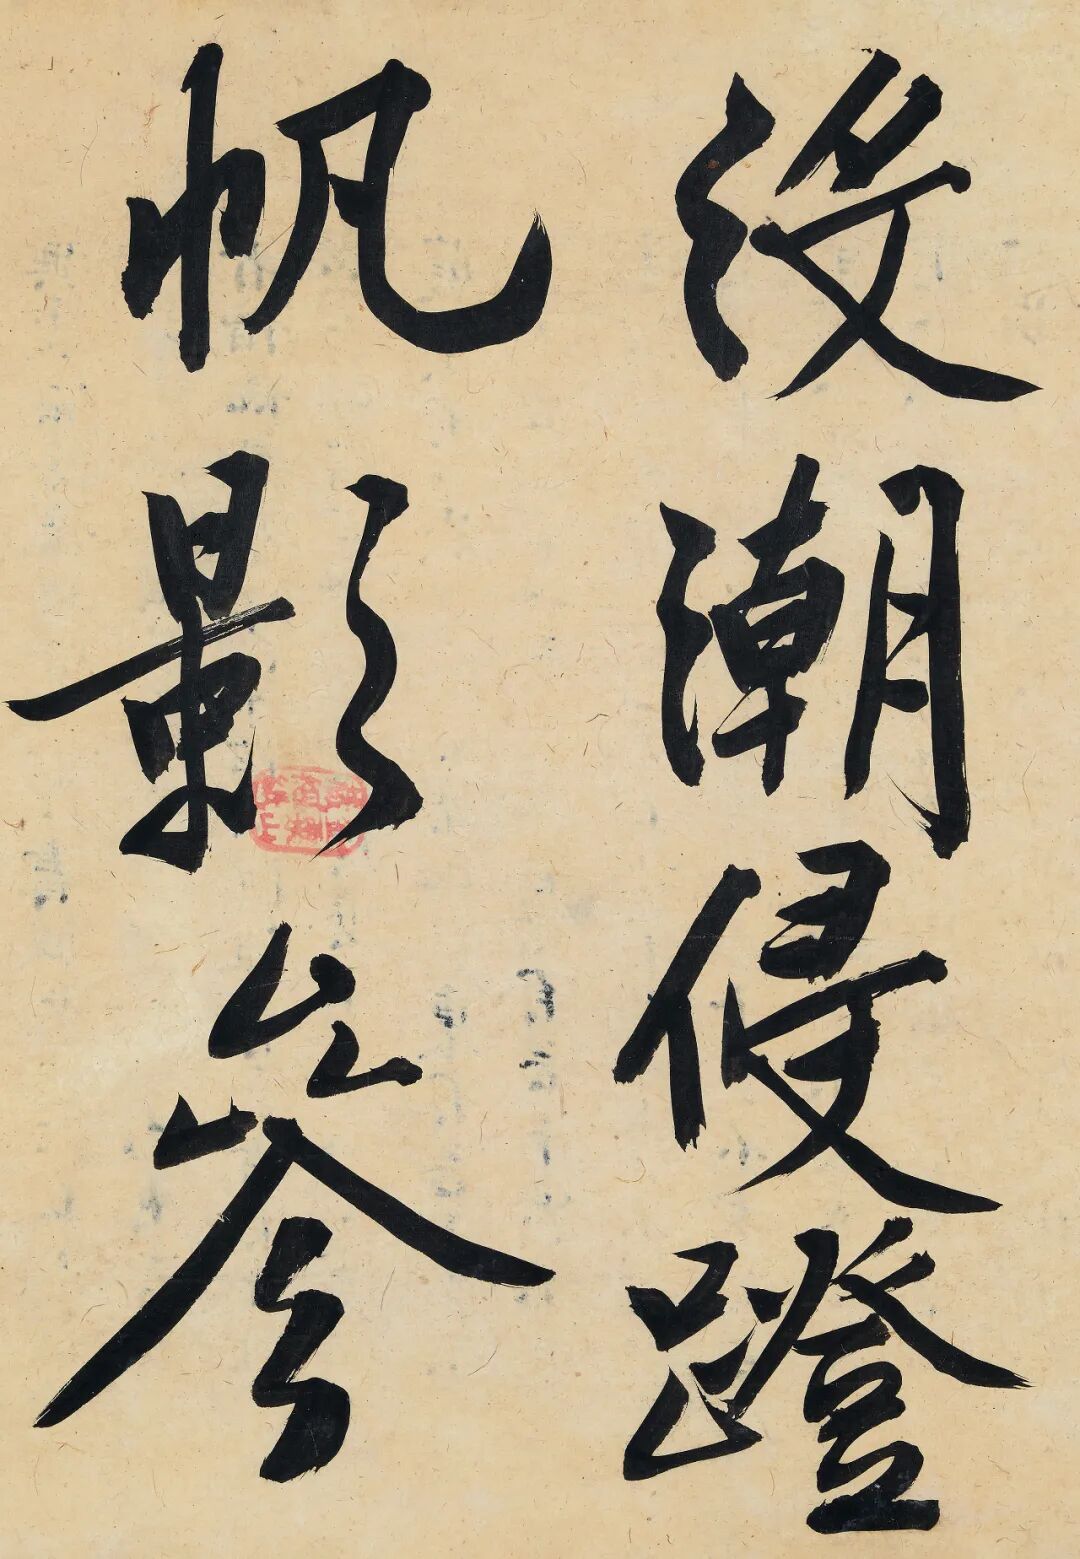 没潮侵蹬
帆影參